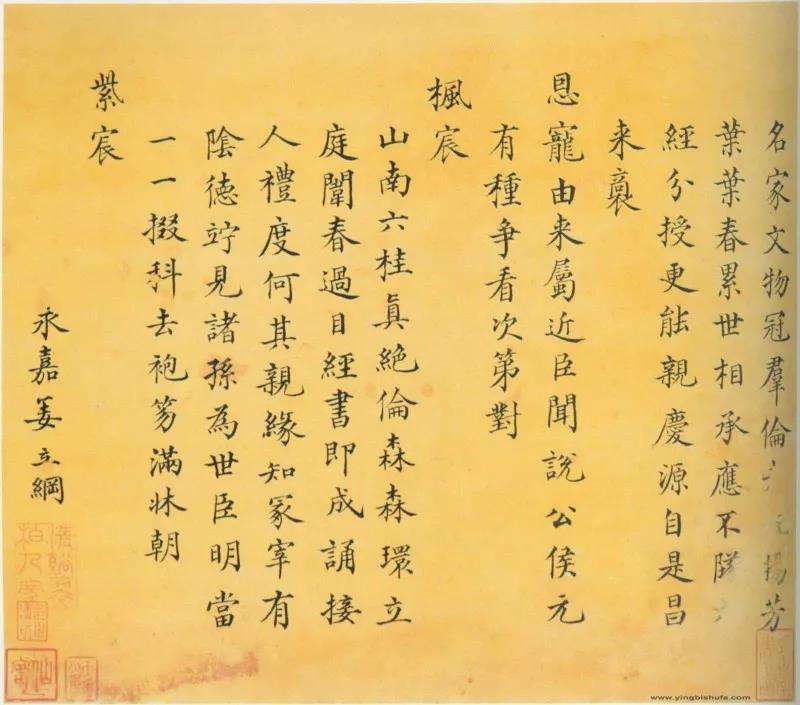 名家文物冠羣倫揚芳
葉葉春累世相承應不墜
經分授更能親慶源自是昌
来裔
恩寵由来屬近臣聞說公侯元
有種争看次第對
楓宸
山南六桂眞絶倫森森環立
庭闈春過目經書即成誦接
人禮度何其親緣知冢宰有
陰徳竚見諸孫為世臣明當
一一掇科去袍笏滿牀朝
紫宸
永嘉姜立綱
www.yingbishufa.com